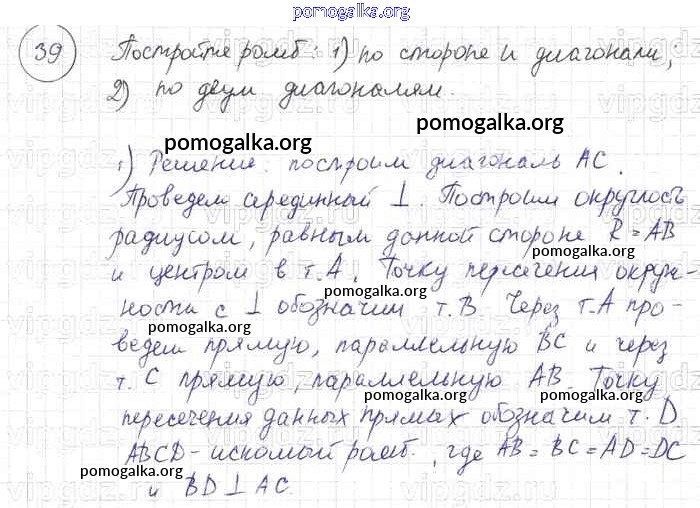 pomogalka.org
39 Постройте ромб: 1) по стороне и диагонали,
2) по двум диагоналям.
pomogalka.org
pomogalka.org
1) Решение: построим диагональ AC.
Проведем серединный ⊥. Построим окружность
pomogalka.org
радиусом, равным данной стороне R = AB
pomogalka.org
и центром в т. A. Точку пересечения окруж-
pomogalka.org
ности с ⊥ обозначим т. B. Через т. A про-
pomogalka.org
ведем прямую, параллельную BC и через
pomogalka.org
т. C прямую, параллельную AB. Точку
pomogalka.org
пересечения данных прямых обозначим т. D
pomogalka.org
ABCD - искомый ромб, где AB = BC = AD = DC
pomogalka.org
и BD ⊥ AC.
vipgdz.ru